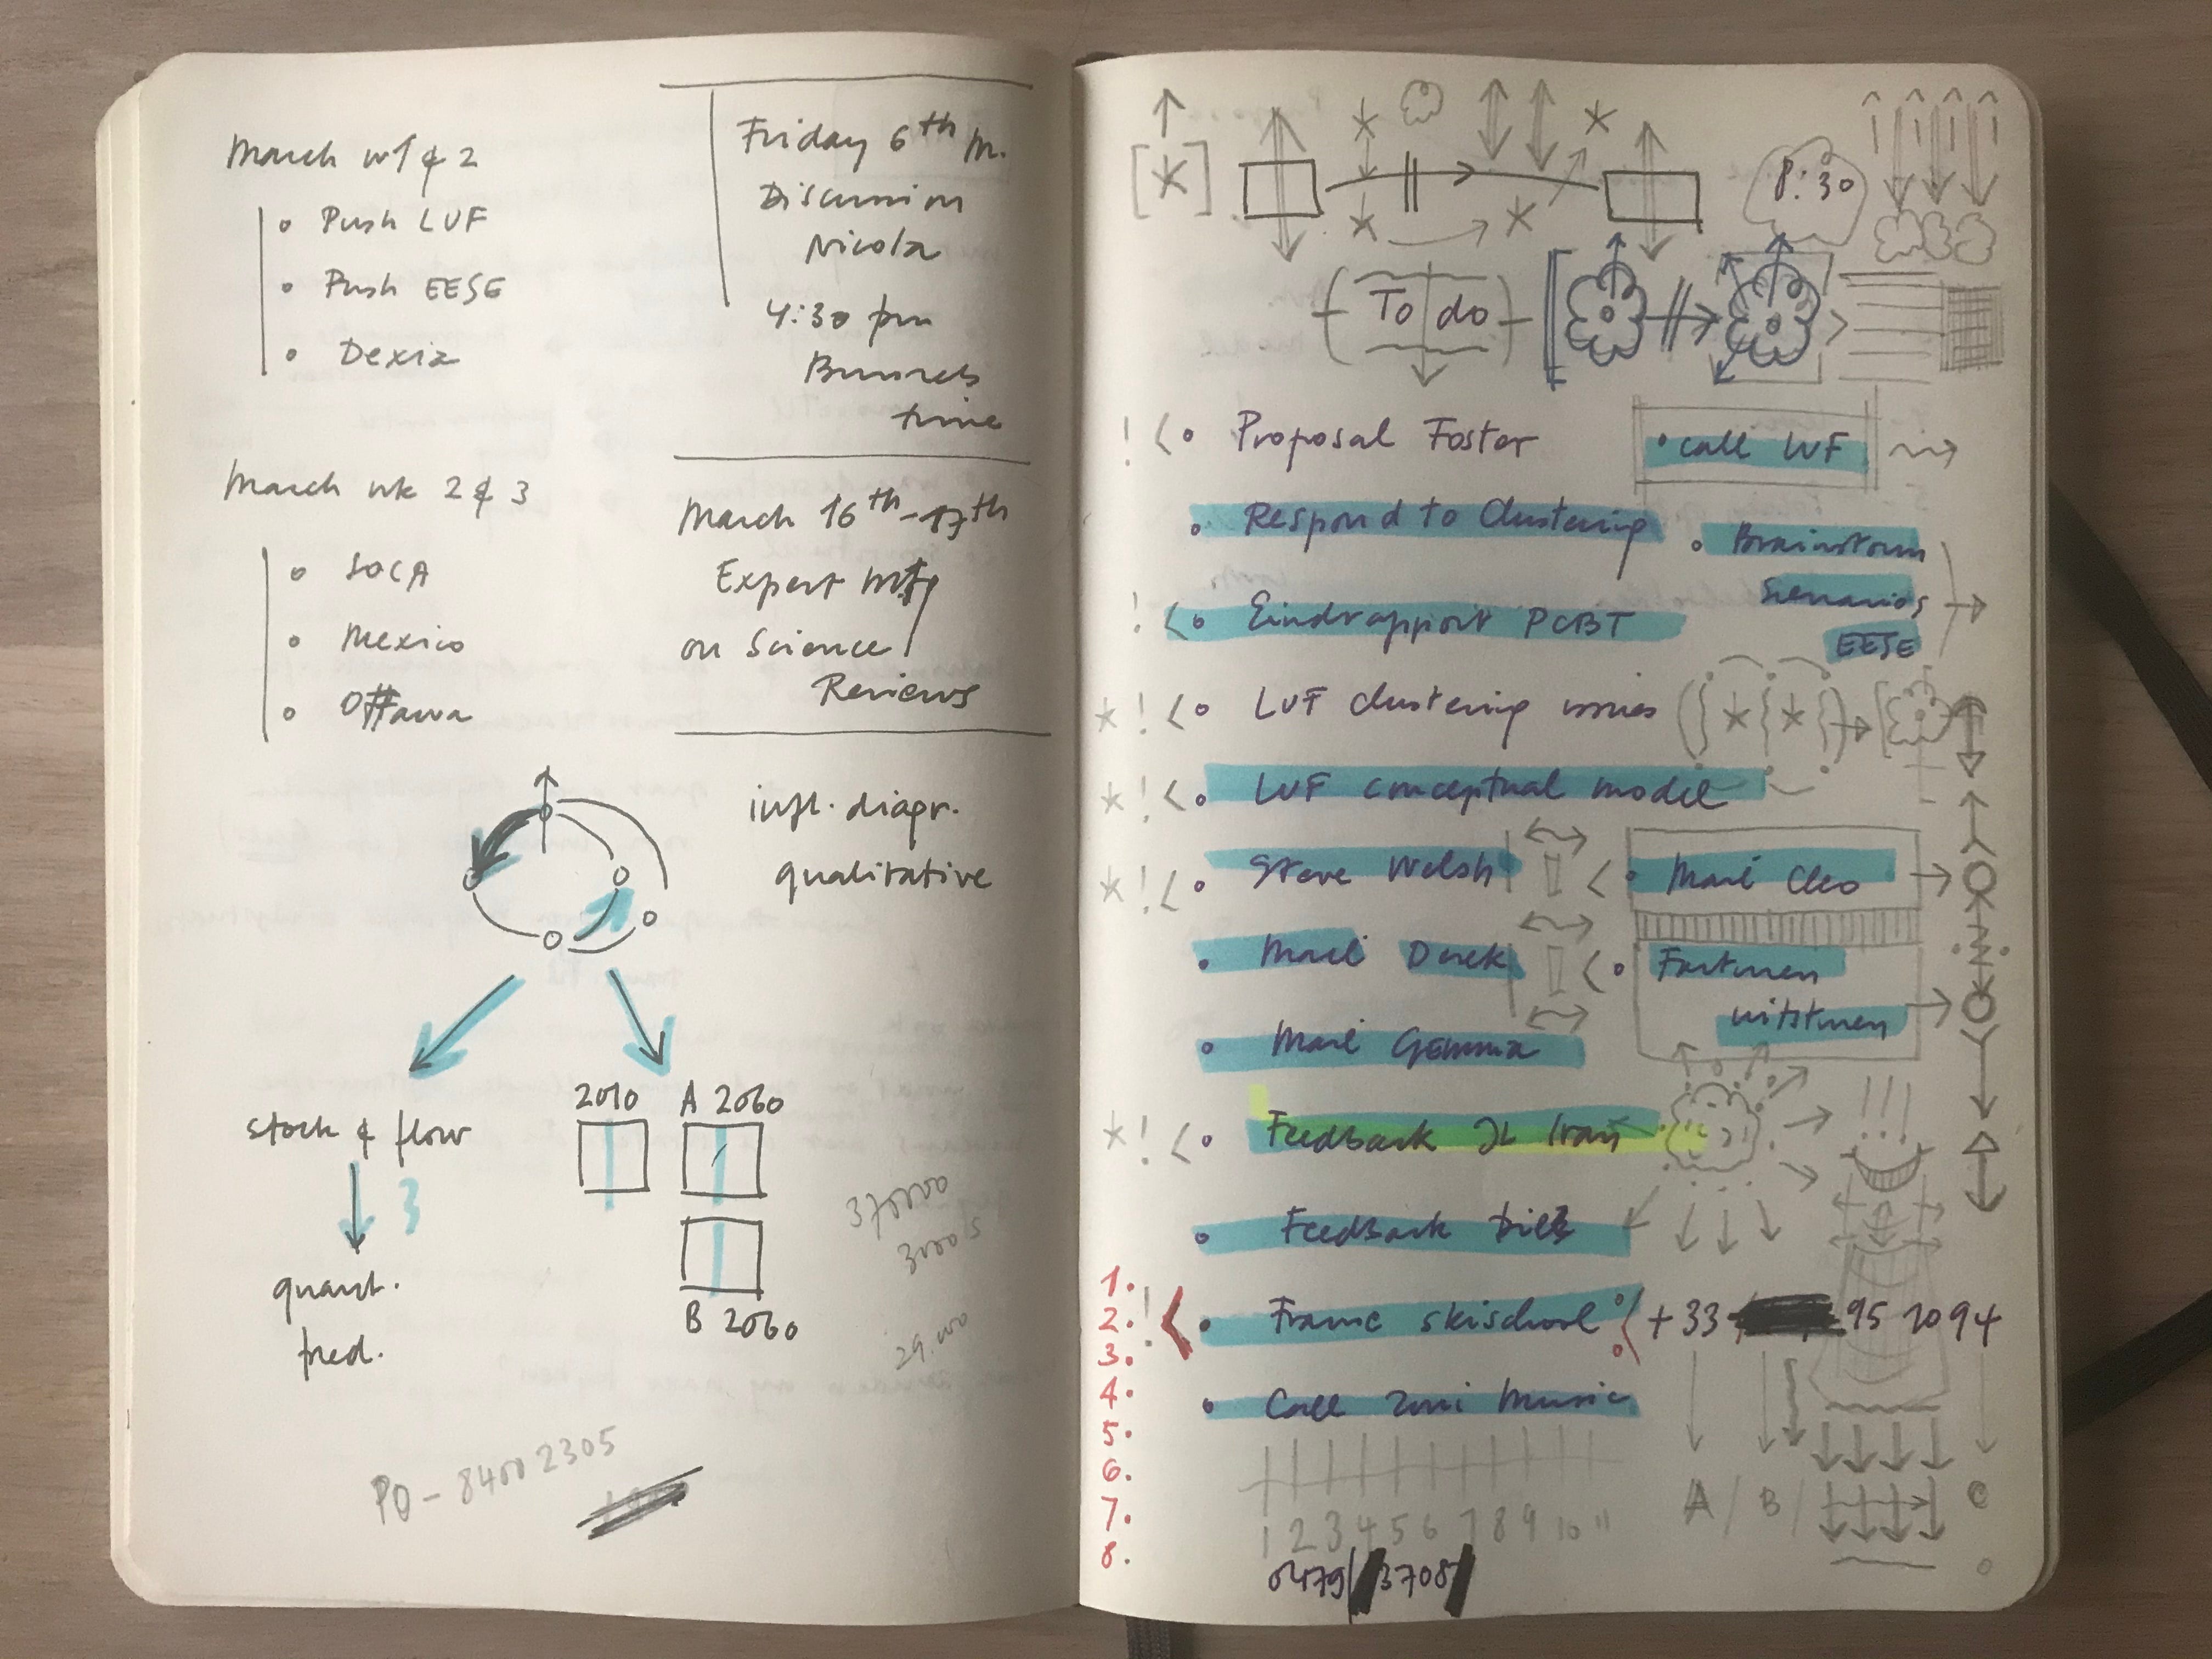 March w1 & 2
• Push LUF
• Push EESE
• Dexia
March wk 2 & 3
• SOCA
• Mexico
• Ottawa
Friday 6th M.
Discussion
Nicola
4:30 pm
Brussels
time
March 16th-17th
Expert mtg
on Science
Reviews
infl. diagr.
qualitative
stock & flow
3
quant.
2010
A 2060
B 2060
370000
29.000
PO-84002305
8:30
To do
! < • Proposal Foster
• call LUF
• Respond to Clustering
• Brainstorm
Scenarios
EESE
! < • Eindrapport PCBT
* ! < • LUF clustering issues
* ! < • LUF conceptual model
* ! < • Steve Welsh
< • Mail Cleo
• Mail Derek
< • Fortunen
uitsturen
• Mail Gemma
* ! < • Feedback JL Iran
• Feedback
! < • Franc skischool
+33 95 2094
• Call Zoni Music
1.
2.
3.
4.
5.
6.
7.
8.
A / B / C
1 2 3 4 5 6 7 8 9 10 11
0479 3708